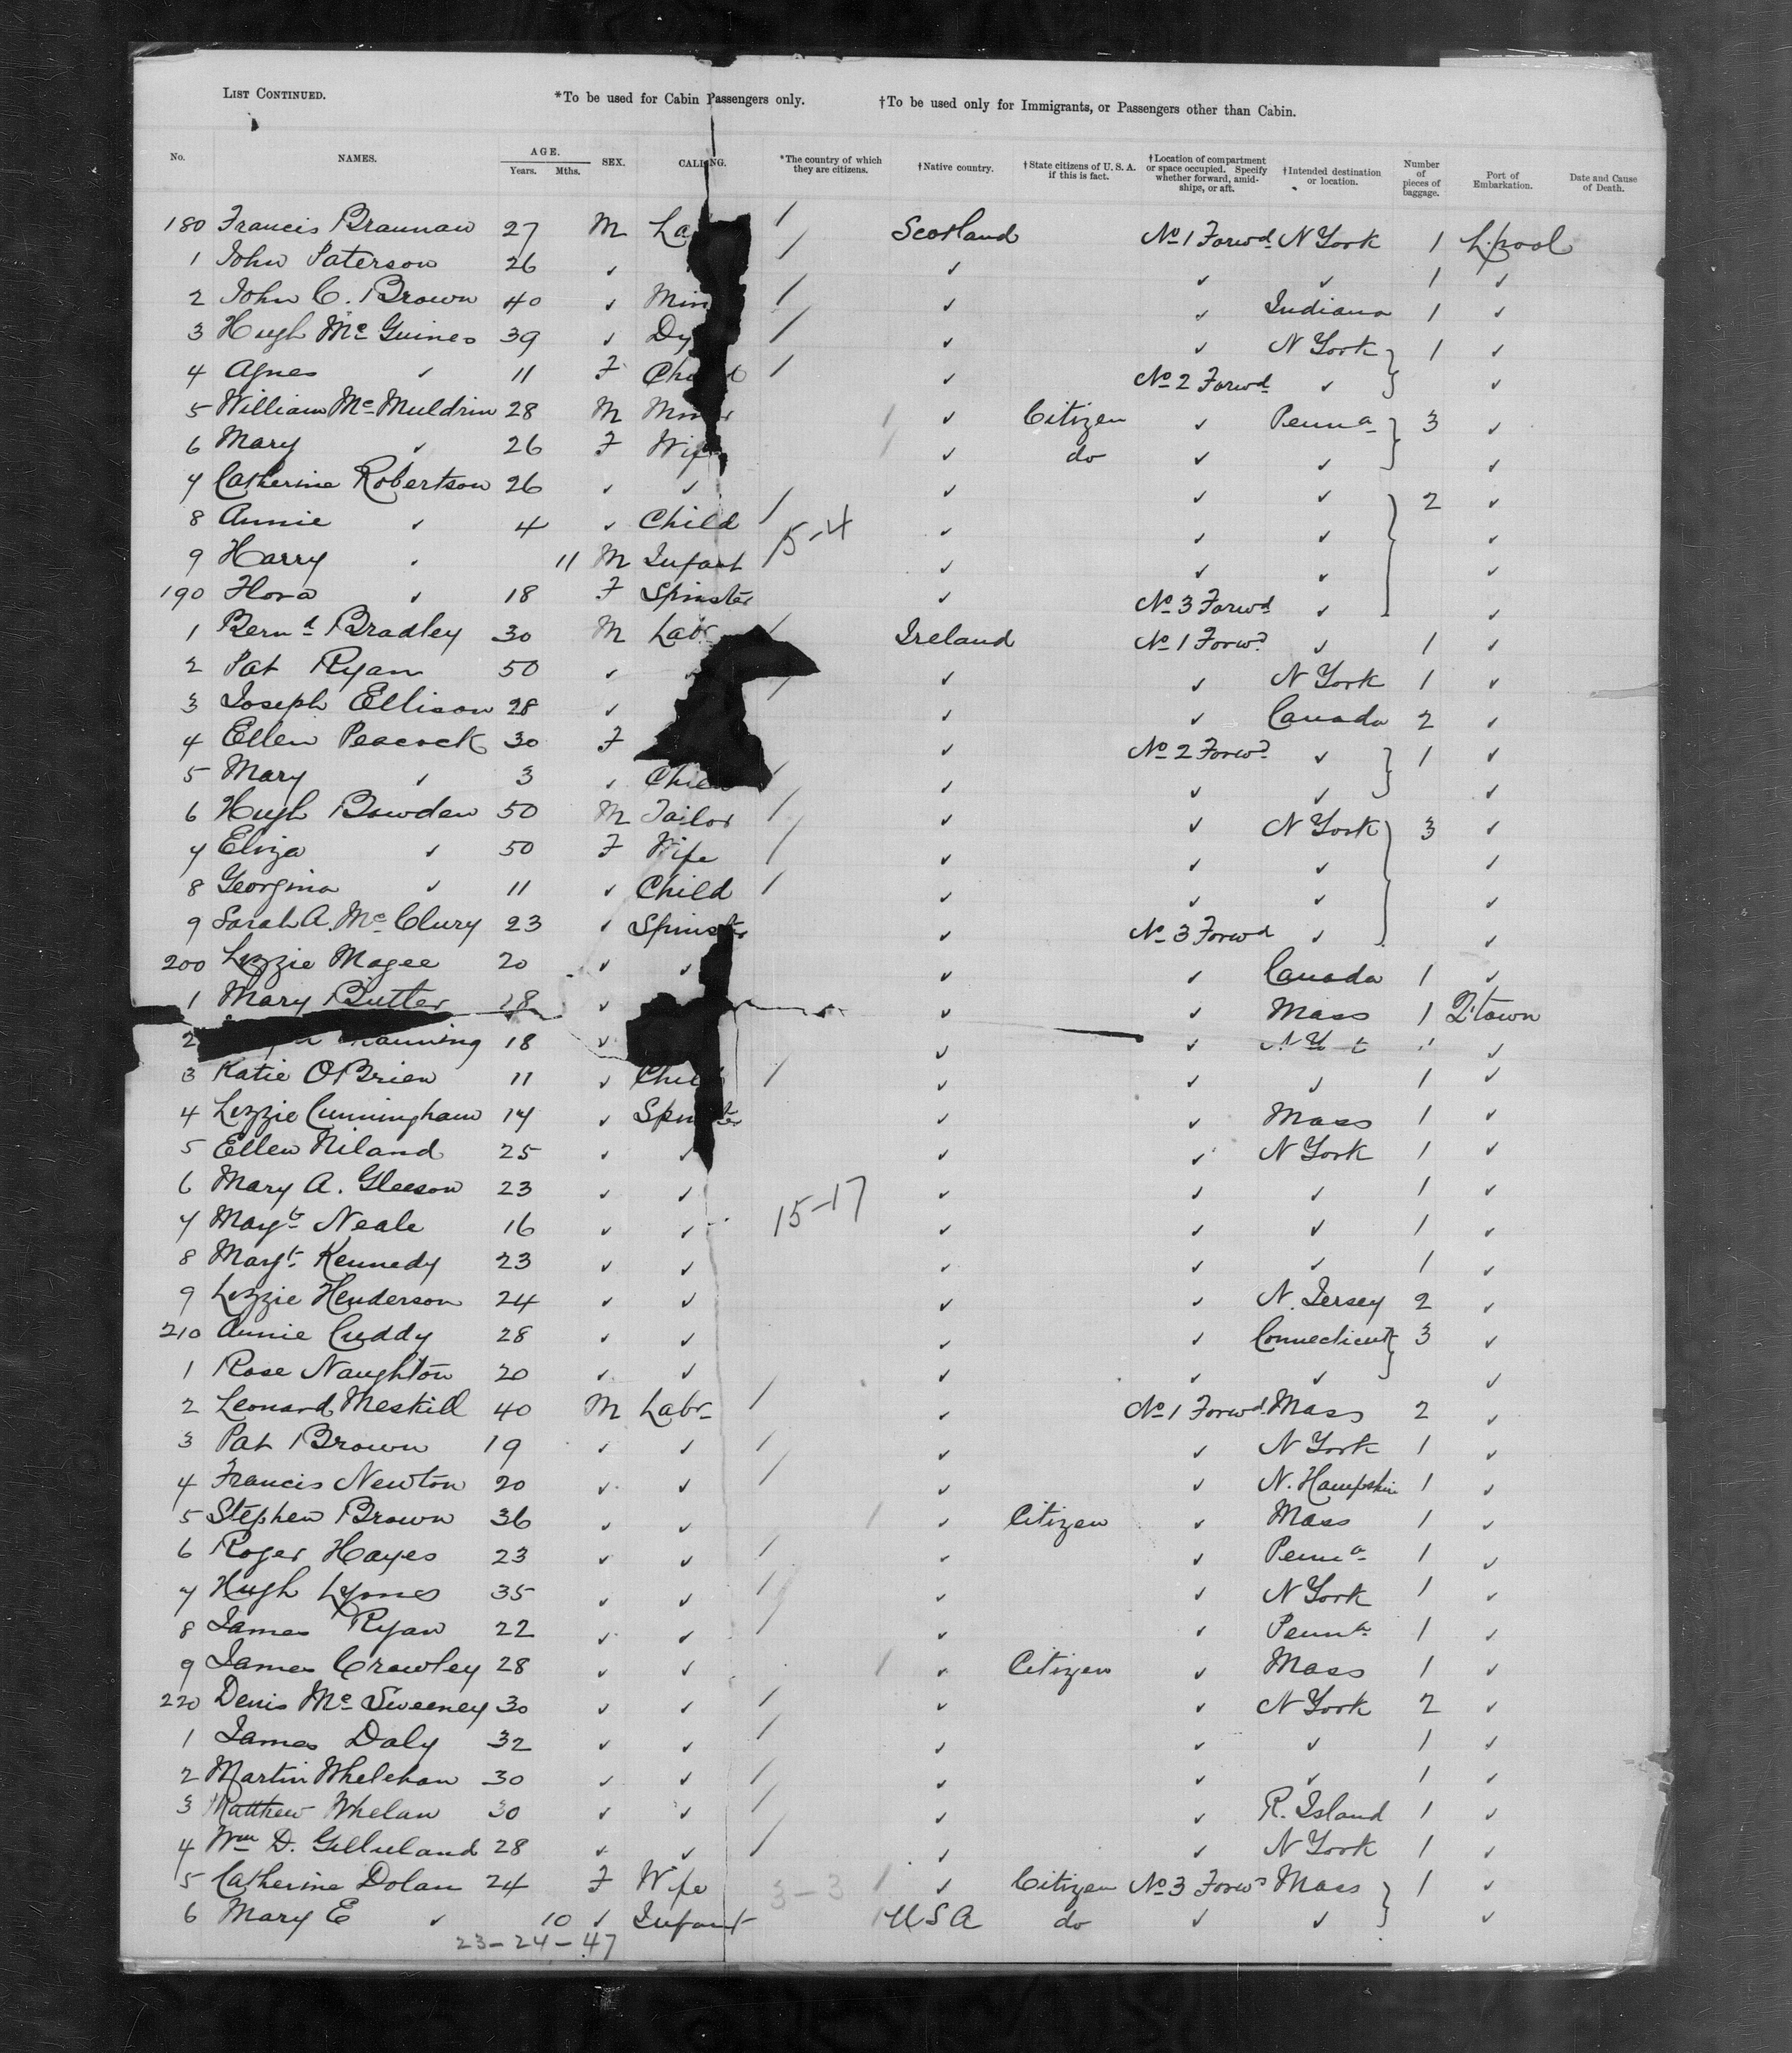 LIST CONTINUED. *To be used for Cabin Passengers only. †To be used only for Immigrants, or Passengers other than Cabin.
No. NAMES. AGE. Years. Mths. SEX. CALLING. *The country of which they are citizens. †Native country. †State citizens of U.S.A. if this is fact. †Location of compartment or space occupied. Specify whether forward, amidships, or aft. †Intended destination or location. Number of pieces of baggage. Port of Embarkation. Date and Cause of Death.
180 Francis Brannan 27 M La / Scotland No 1 Forwd N York 1 L'pool
1 John Paterson 26 ✓ / ✓ ✓ ✓ 1 ✓
2 John C. Brown 40 ✓ Min / ✓ ✓ Indiana 1 ✓
3 Hugh Mc Guines 39 ✓ Dy / ✓ ✓ N York } 1 ✓
4 Agnes ✓ 11 F Child / ✓ No 2 Forwd ✓ ✓
5 William Mc Muldrin 28 M Miner / ✓ Citizen ✓ Penna } 3 ✓
6 Mary ✓ 26 F Wife / ✓ do ✓ ✓ ✓
7 Catherine Robertson 26 ✓ ✓ ✓ ✓ ✓ } 2 ✓
8 Annie ✓ 4 ✓ Child / 5-4 ✓ ✓ ✓ ✓
9 Harry ✓ 11 M Infant / ✓ ✓ ✓ ✓
190 Flora ✓ 18 F Spinster ✓ No 3 Forwd ✓ ✓
1 Bernd Bradley 30 M Labr / Ireland No 1 Forwd ✓ 1 ✓
2 Pat Ryan 50 ✓ / ✓ ✓ N York 1 ✓
3 Joseph Ellison 28 ✓ ✓ ✓ Canada 2 ✓
4 Ellen Peacock 30 F ✓ No 2 Forwd ✓ } 1 ✓
5 Mary ✓ 3 ✓ Child / ✓ ✓ ✓ ✓
6 Hugh Bowden 50 M Tailor / ✓ ✓ N York } 3 ✓
7 Eliza ✓ 50 F Wife / ✓ ✓ ✓ ✓
8 Georgina ✓ 11 ✓ Child / ✓ ✓ ✓ ✓
9 Sarah A. Mc Clury 23 ✓ Spinster ✓ No 3 Forwd ✓ ✓
200 Lizzie Magee 20 ✓ ✓ ✓ ✓ Canada 1 ✓
1 Mary Butler 18 ✓ ✓ ✓ Mass 1 Q'town
2 Manning 18 ✓ ✓ ✓ 1 ✓
3 Katie O'Brien 11 ✓ Child / ✓ ✓ ✓ 1 ✓
4 Lizzie Cunningham 17 ✓ Spinster ✓ ✓ Mass 1 ✓
5 Ellen Niland 25 ✓ ✓ ✓ ✓ N York 1 ✓
6 Mary A. Gleeson 23 ✓ ✓ ✓ ✓ ✓ 1 ✓
7 Magt Neale 16 ✓ ✓ 15-17 ✓ ✓ ✓ 1 ✓
8 Margt Kennedy 23 ✓ ✓ ✓ ✓ ✓ 1 ✓
9 Lizzie Henderson 24 ✓ ✓ ✓ ✓ N. Jersey 2 ✓
210 Annie Cuddy 28 ✓ ✓ ✓ ✓ Connecticut } 3 ✓
1 Rose Naughton 20 ✓ ✓ ✓ ✓ ✓ ✓
2 Leonard Meskill 40 M Labr / ✓ No 1 Forwd Mass 2 ✓
3 Pat Brown 19 ✓ ✓ / ✓ ✓ N York 1 ✓
4 Francis Newton 20 ✓ ✓ / ✓ ✓ N. Hampshire 1 ✓
5 Stephen Brown 36 ✓ ✓ / ✓ Citizen ✓ Mass 1 ✓
6 Roger Hayes 23 ✓ ✓ / ✓ ✓ Penna 1 ✓
7 Hugh Lyons 35 ✓ ✓ / ✓ ✓ N York 1 ✓
8 James Ryan 22 ✓ ✓ / ✓ ✓ Penna 1 ✓
9 James Crowley 28 ✓ ✓ / ✓ Citizen ✓ Mass 1 ✓
220 Denis Mc Sweeney 30 ✓ ✓ / ✓ ✓ N York 2 ✓
1 James Daly 32 ✓ ✓ / ✓ ✓ ✓ 1 ✓
2 Martin Whelehan 30 ✓ ✓ / ✓ ✓ ✓ 1 ✓
3 Matthew Whelan 30 ✓ ✓ / ✓ ✓ R. Island 1 ✓
4 Wm D. Gilluland 28 ✓ ✓ / ✓ ✓ N York 1 ✓
5 Catherine Dolan 24 F Wife 3-3 / ✓ Citizen No 3 Forwd Mass } 1 ✓
6 Mary E ✓ 10 ✓ Infant / USA do ✓ ✓ ✓
23-24-47